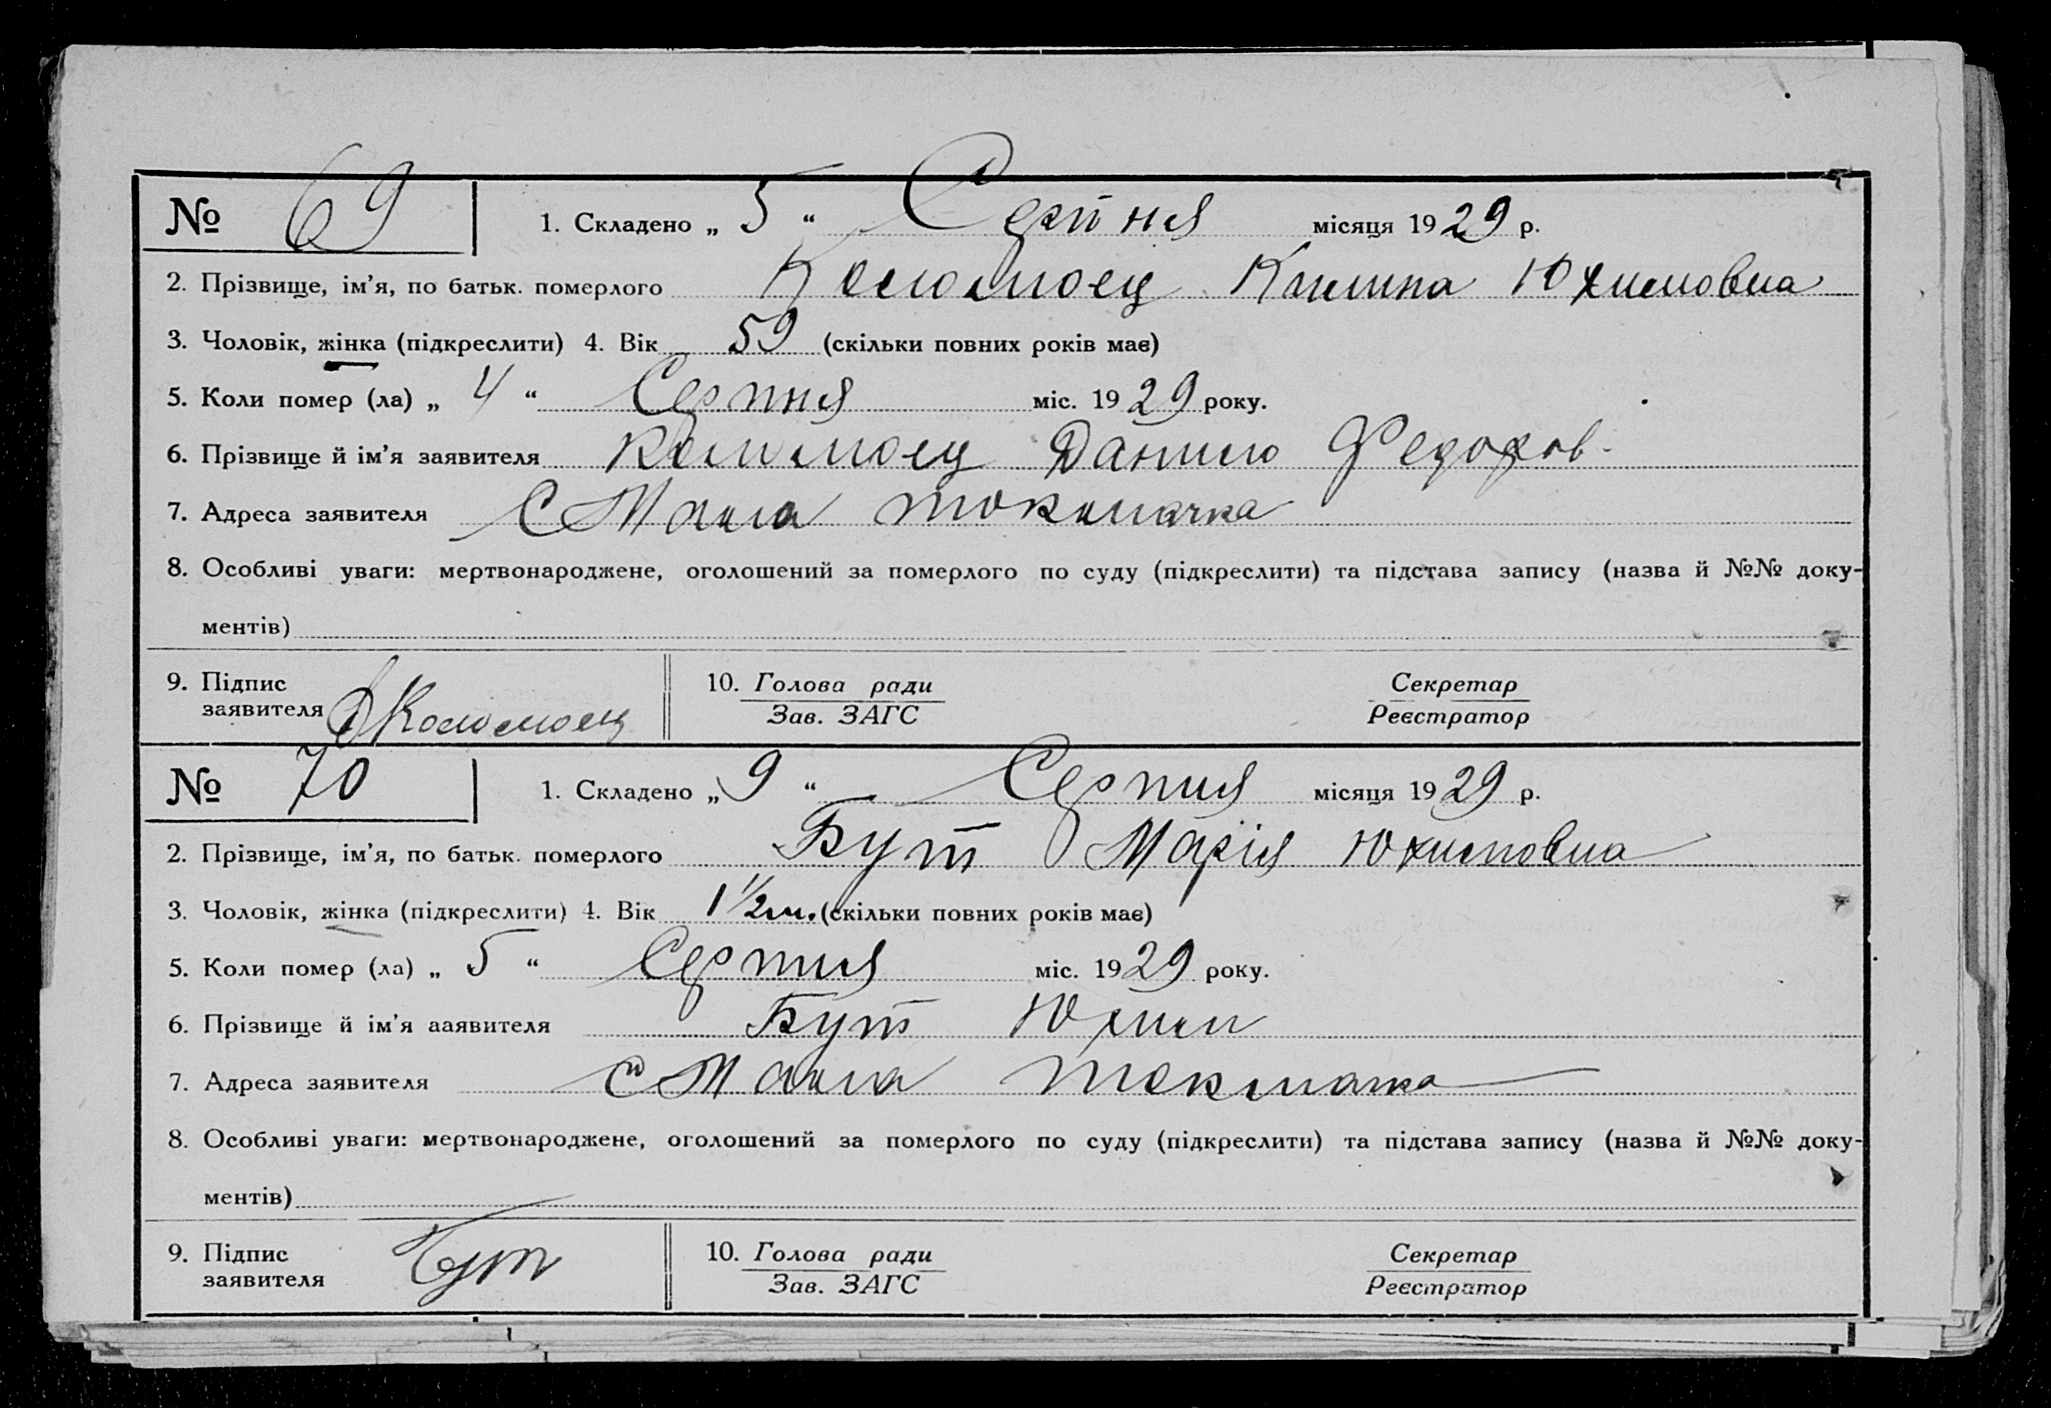 № 69 1. Складено „ 5 “ Серпня місяця 1929 р.
2. Прізвище, ім’я, по батьк. померлого Коломоец Килина Юхимовна
3. Чоловік, жінка (підкреслити) 4. Вік 59 (скільки повних років має)
5. Коли помер (ла) „ 4 “ Серпня міс. 1929 року.
6. Прізвище й ім’я заявителя Коломоец Данило Федоров-
7. Адреса заявителя С Мала токмачка
8. Особливі уваги: мертвонароджене, оголошений за померлого по суду (підкреслити) та підстава запису (назва й №№ доку-
ментів)
9. Підпис заявителя ДКоломоец 10. Голова ради Секретар
Зав. ЗАГС Реєстратор
№ 70 1. Складено „ 9 “ Серпня місяця 1929 р.
2. Прізвище, ім’я, по батьк. померлого Бут Марія Юхимовна
3. Чоловік, жінка (підкреслити) 4. Вік 1 1/2 м. (скільки повних років має)
5. Коли помер (ла) „ 5 “ Серпня міс. 1929 року.
6. Прізвище й ім’я ааявителя Бут Юхим
7. Адреса заявителя С Мала Токмачка
8. Особливі уваги: мертвонароджене, оголошений за померлого по суду (підкреслити) та підстава запису (назва й №№ доку-
ментів)
9. Підпис заявителя Бут 10. Голова ради Секретар
Зав. ЗАГС Реєстратор